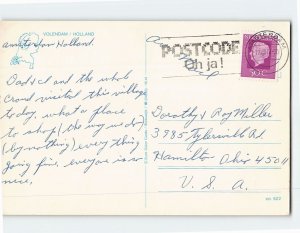 VOLENDAM / HOLLAND
Amsterdam Holland.
Dad & I and the whole
crowd visited this village
today, what a place
to shop (the way we do)
(by nothing) every thing
going fine, everyone is so
nice.
POSTCODE
Oh ja!
50c
Dorothy & Roy Miller
3985 Tylersville Rd.
Hamilton Ohio 45011
U. S. A.